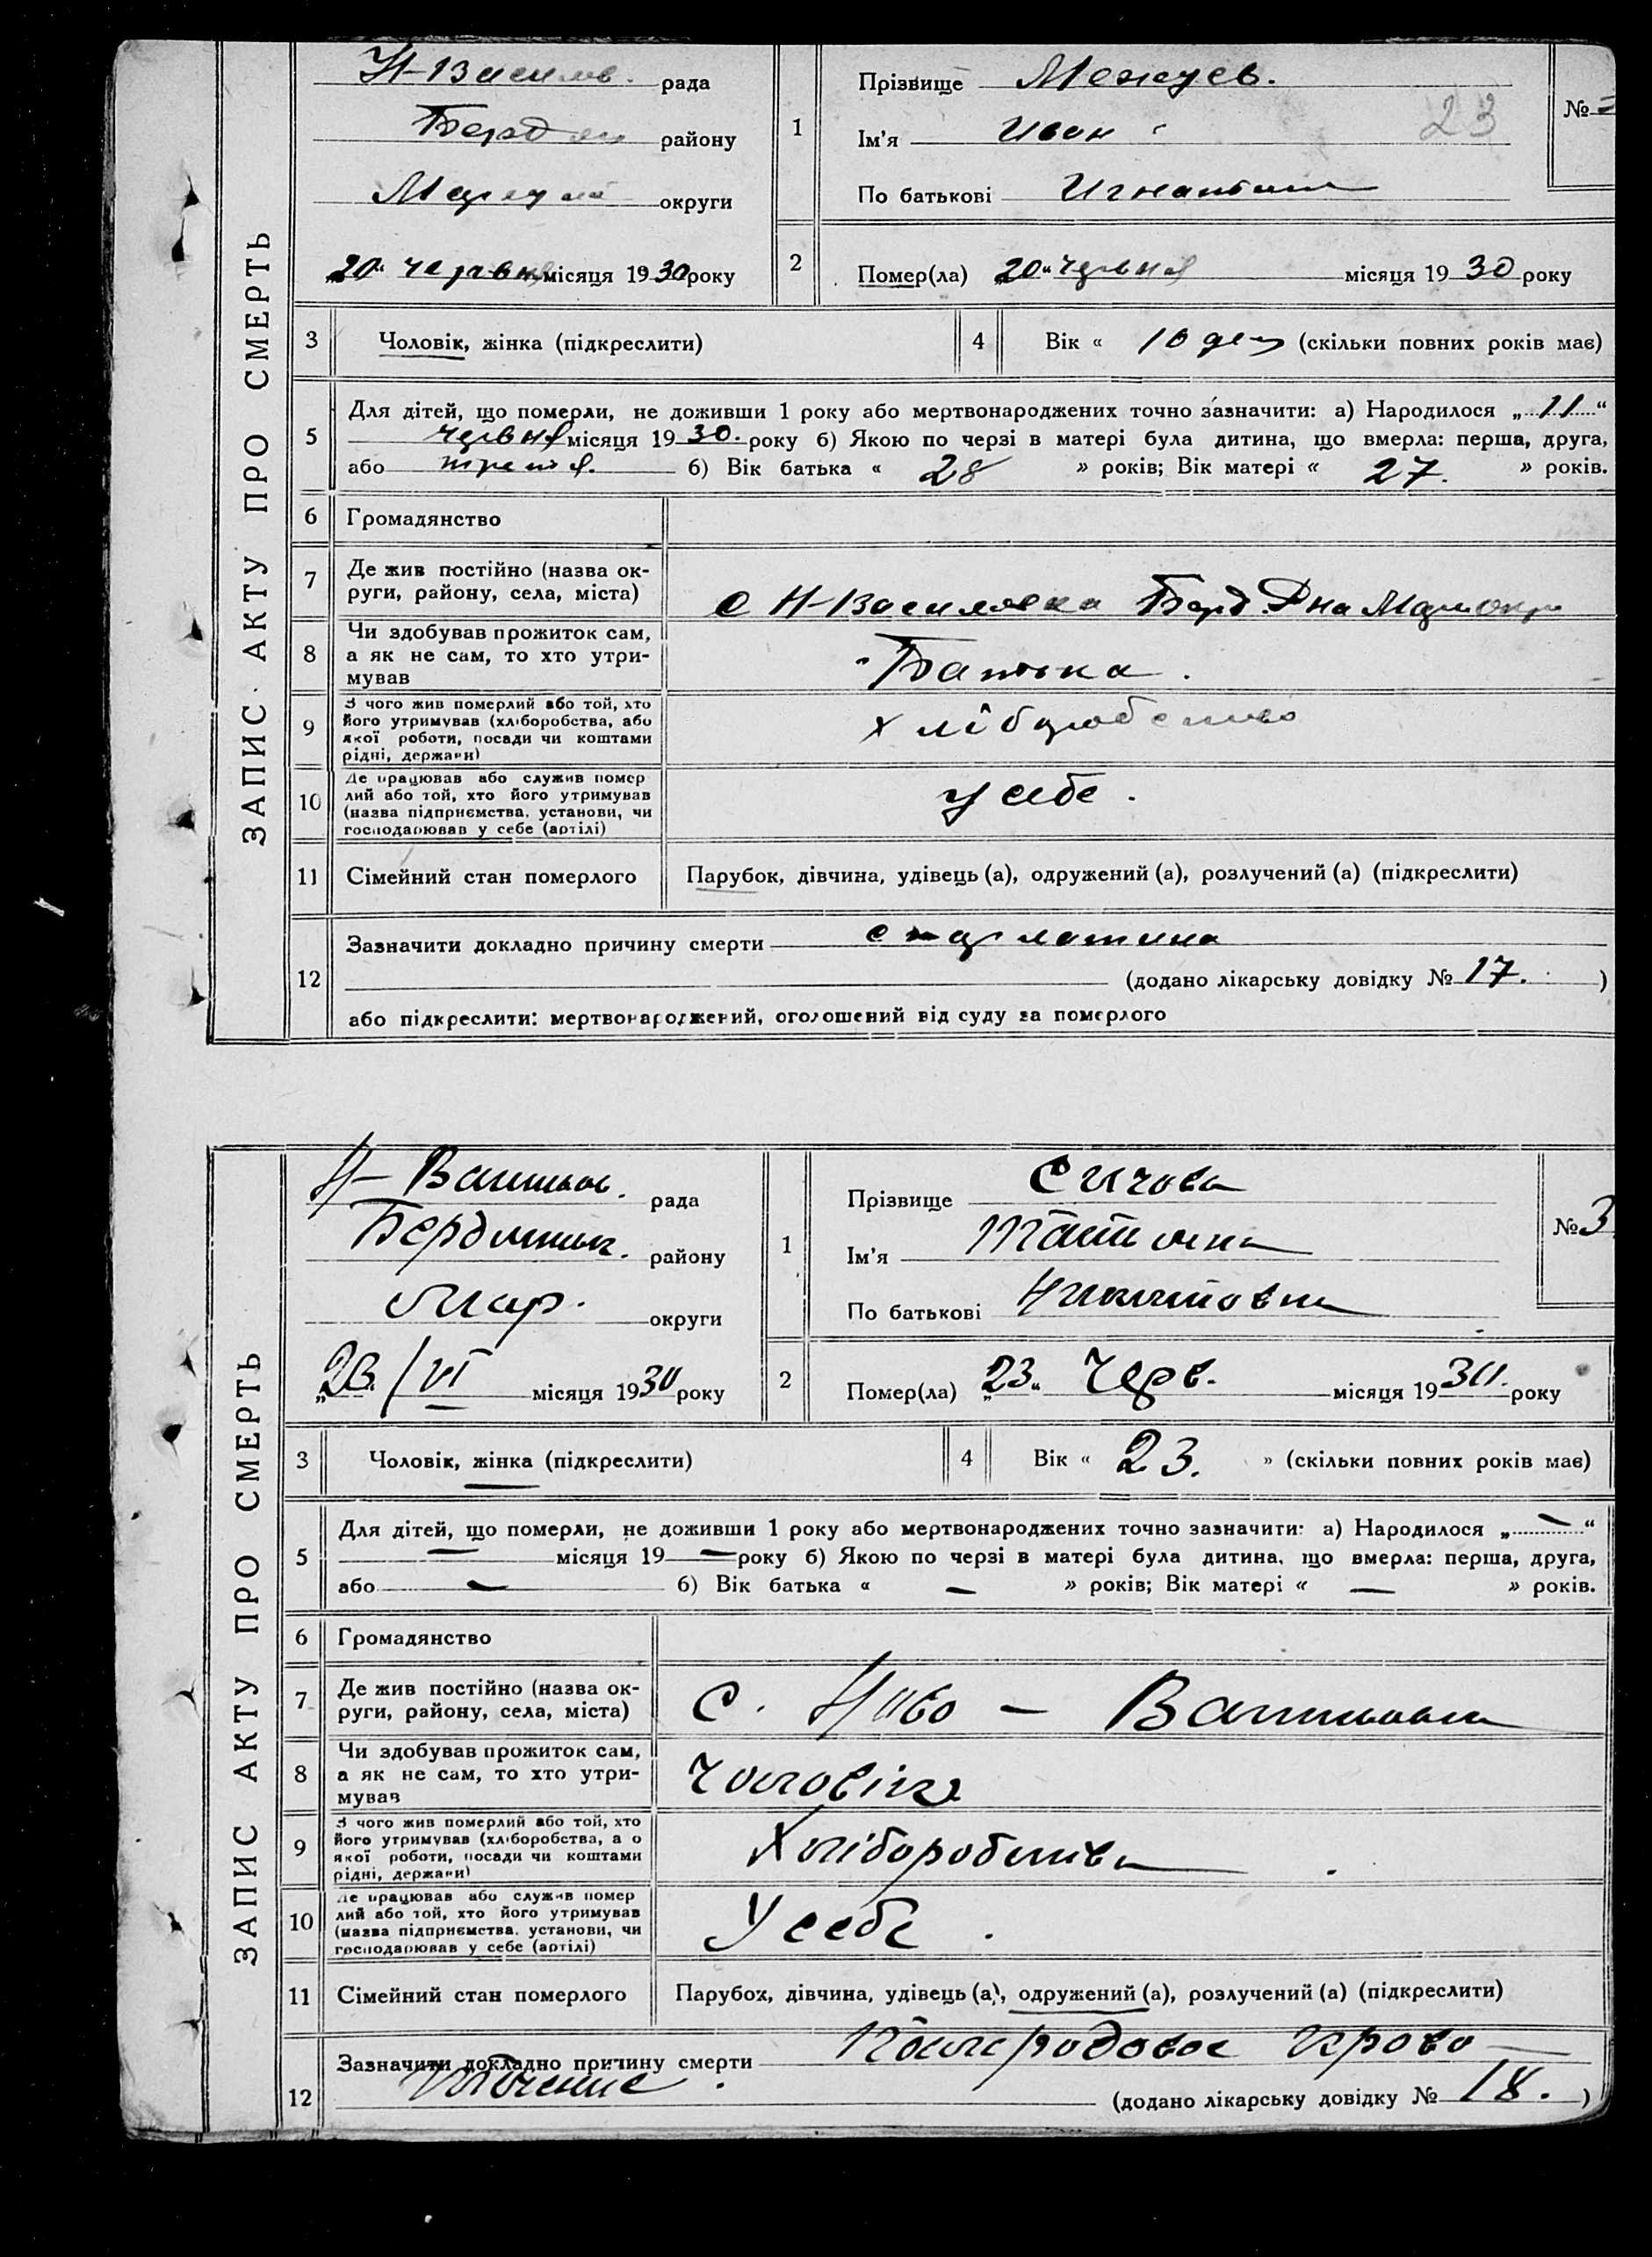 ЗАПИС АКТУ ПРО СМЕРТЬ
Н-Василів. рада
Берд районy
округи
20 червня місяця 1930 року
1
Прізвище Межуев.
Ім'я Иван
23
По батькові Игнатович
№
2
Помер(ла) „20“ червня місяця 19 30 року
3
Чоловік, жінка (підкреслити)
4
Вік « 10 ден (скільки повних років має)
5
Для дітей, що померли, не доживши 1 року або мертвонароджених точно зазначити: а) Народилося „ 11 “
червня місяця 19 30. року б) Якою по черзі в матері була дитина, що вмерла: перша, друга,
або третя. б) Вік батька « 28 » років; Вік матері « 27. » років.
6
Громадянство
7
Де жив постійно (назва ок-
руги, району, села, міста)
с Н-Василовка Берд Р на Мар окр
8
Чи здобував прожиток сам,
а як не сам, то хто утри-
мував
Батька.
9
З чого жив померлий або той, хто
його утримував (хліборобства, або
якої роботи, посади чи коштами
рідні, держави)
хліборобство
10
Де працював або служив помер
лий або той, хто його утримував
(назва підприємства, установи, чи
господарював у себе (артілі)
у себе.
11
Сімейний стан померлого
Парубок, дівчина, удівець (а), одружений (а), розлучений (а) (підкреслити)
12
Зазначити докладно причину смерти скарлатина
(додано лікарську довідку № 17. )
або підкреслити: мертвонароджений, оголошений від суду за померлого
ЗАПИС АКТУ ПРО СМЕРТЬ
Н-Васильов. рада
Бердянськ. району
Мар. округи
„23./VI місяця 1930 року
1
Прізвище Сичова
Ім'я Татиана
По батькові Никитовна
№ 3
2
Помер(ла) „23“ Черв. місяця 19 30. року
3
Чоловік, жінка (підкреслити)
4
Вік « 23. » (скільки повних років має)
5
Для дітей, що померли, не доживши 1 року або мертвонароджених точно зазначити: а) Народилося „ — “
— місяця 19 — року б) Якою по черзі в матері була дитина, що вмерла: перша, друга,
або — б) Вік батька « — » років; Вік матері « — » років.
6
Громадянство
7
Де жив постійно (назва ок-
руги, району, села, міста)
с. Ново — Васильовка
8
Чи здобував прожиток сам,
а як не сам, то хто утри-
мував
Чоловіка
9
З чого жив померлий або той, хто
його утримував (хліборобства, а о
якої роботи, посади чи коштами
рідні, держави)
Хліборобства
10
Де працював або служив помер
лий або той, хто його утримував
(назва підприємства, установи, чи
господарював у себе (артілі)
У себе.
11
Сімейний стан померлого
Парубок, дівчина, удівець (а), одружений (а), розлучений (а) (підкреслити)
12
Зазначити докладно причину смерти Послеродовое крово—
течение.
(додано лікарську довідку № 18. )